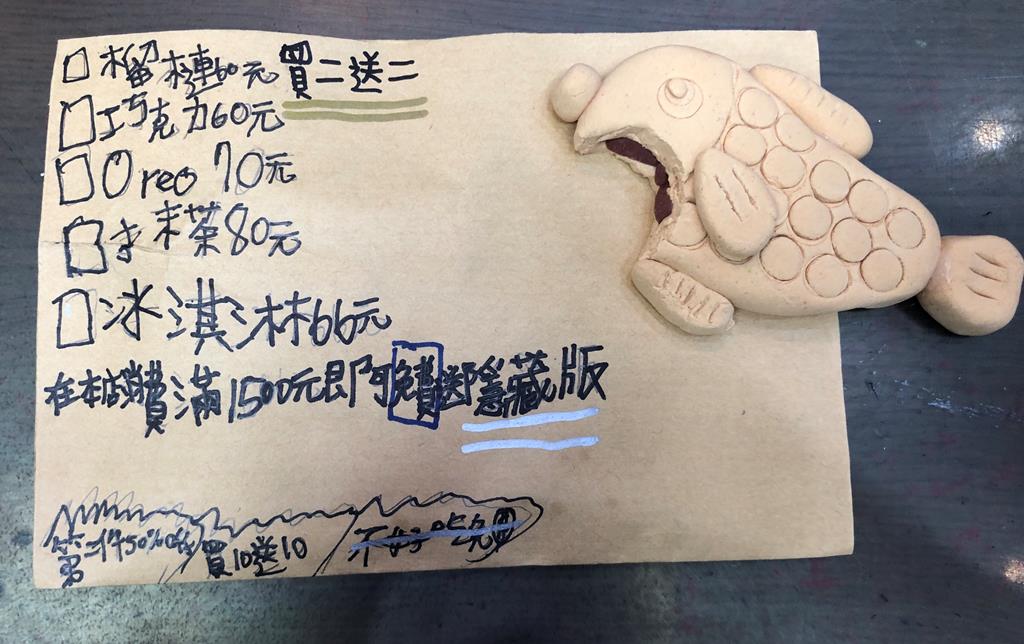 榴槤60元 買二送二
巧克力60元
Oreo 70元
抹茶80元
冰淇淋66元
在本店消費滿1500元即可免費送隱藏版
第二件50%off 買10送10 不好吃免